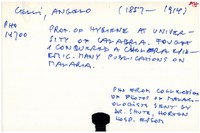 CELLI, ANGELO (1857 - 1914)
PHO
14700
PROF. OF HYGIENE AS UNIVER-
SITY OF CALABRIA. FOUGHT
& CONQUERED A CHOLERA EPID-
EMIC. MANY PUBLICATIONS ON
MALARIA.
PHO FROM COLLECTION
OF PHOTOS OF MALAR-
IOLOGISTS SENT BY
DR. SHUTE, HORTON
HOSP. EPSOM